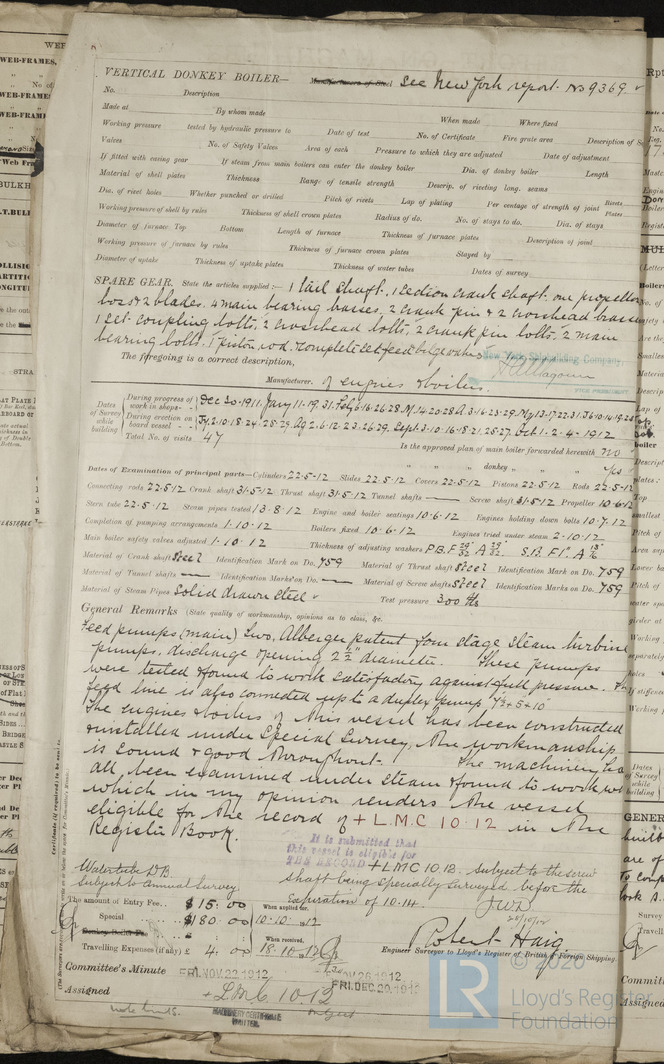 VERTICAL DONKEY BOILER— Manufacturers of Steel See New York report No 9369
No. Description
Made at By whom made When made Where fixed
Working pressure tested by hydraulic pressure to Date of test No. of Certificate Fire grate area Description of
Valves No. of Safety Valves Area of each Pressure to which they are adjusted Date of adjustment
If fitted with easing gear If steam from main boilers can enter the donkey boiler Dia. of donkey boiler Length
Material of shell plates Thickness Range of tensile strength Descrip. of riveting long. seams
Dia. of rivet holes Whether punched or drilled Pitch of rivets Lap of plating Per centage of strength of joint Rivets Plates
Working pressure of shell by rules Thickness of shell crown plates Radius of do. No. of stays to do. Dia. of stays
Diameter of furnace Top Bottom Length of furnace Thickness of furnace plates Description of joint
Working pressure of furnace by rules Thickness of furnace crown plates Stayed by
Diameter of uptake Thickness of uptake plates Thickness of water tubes Dates of survey
SPARE GEAR. State the articles supplied:— 1 tail shaft. 1 section crank shaft. one propeller
boss & 2 blades. 4 main bearing brasses, 2 crank pin & 2 crosshead brasses
1 set coupling bolts, 2 crosshead bolts, 2 crank pin bolts, 2 main
bearing bolts. 1 piston rod. complete set feed & bilge valves
The foregoing is a correct description, New York Shipbuilding Company.
Manufacturer. of engines & boilers. VICE PRESIDENT
Dates of Survey while building
During progress of work in shops - - Dec 20. 1911. Jany 11. 19. 31. Feb 6. 16. 26. 28 M. 14. 20. 28 A 3. 16. 23. 29. My 13. 17. 22. 31 J 6. 10. 14. 19. 28
During erection on board vessel - - Jy. 2. 10. 18. 24. 28. 29. Ag 2. 6. 12. 23. 26. 29. Sept. 3. 10. 16. 18. 21. 25. 27. Oct 1. 2. 4. 1912
Total No. of visits 47
In the approved plan of main boiler forwarded herewith No
" " " donkey " " " yes
Dates of Examination of principal parts—Cylinders 22.5.12 Slides 22.5.12 Covers 22.5.12 Pistons 22.5.12 Rods 22.5.12
Connecting rods 22.5.12 Crank shaft 31.5.12 Thrust shaft 31.5.12 Tunnel shafts — Screw shaft 31.5.12 Propeller 10.6.12
Stern tube 22.5.12 Steam pipes tested 13.8.12 Engine and boiler seatings 10.6.12 Engines holding down bolts 10.7.12
Completion of pumping arrangements 1.10.12 Boilers fixed 10.6.12 Engines tried under steam 2.10.12
Main boiler safety valves adjusted 1.10.12 Thickness of adjusting washers P.B.F
Material of Crank shaft Steel Identification Mark on Do. 759 Material of Thrust shaft Steel Identification Mark on Do. 759
Material of Tunnel shafts — Identification Marks on Do. — Material of Screw shafts Steel Identification Marks on Do. 759
Material of Steam Pipes Solid drawn steel Test pressure 300 lbs
General Remarks (State quality of workmanship, opinions as to class, &c.
Feed pumps (main) two, Alberger patent four stage steam turbine
pumps, discharge opening 2½" diameter. These pumps
were tested & found to work satisfactory against full pressure. The
feed line is also connected up to a duplex pump 7½ + 5 + 10
The engines & boilers of this vessel has been constructed
& installed under Special Survey, the workmanship
is sound & good throughout. The machinery has
all been examined under steam & found to work well
which in my opinion renders the vessel
eligible for the record of + L M C 10.12 in the
Register Book.
It is submitted that
this vessel is eligible for
THE RECORD + LMC 10.12. subject to the screw
shaft being specially surveyed before the
expiration of 10.14.
Watertube D.B.
Subject to Annual Survey
The amount of Entry Fee.. $ 15: 00 When applied for,
Special $ 180: 00 10.10.12
Donkey Boiler Fee £ : : When received,
Travelling Expenses (if any) £ 4. 00 18.10.12
Robert Haig
Engineer Surveyor to Lloyd's Register of British & Foreign Shipping
Committee's Minute FRI. NOV. 22 1912 NOV 26 1912
FRI. DEC. 20. 1912
Assigned + LMC 10.12
MACHINERY CERTIFICATE
WRITTEN.
Certificate (if required) to be sent to
© 2020
LR Lloyd's Register
Foundation